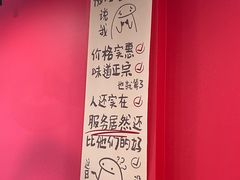 说
我
价格实惠
味道正宗
也就算了
人还实在
服务居然还
比他们的好